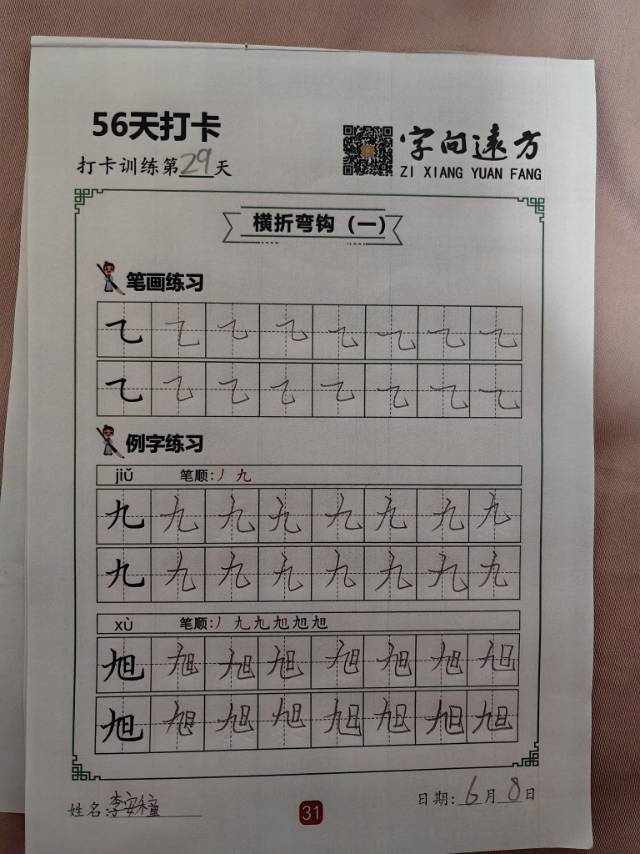 56天打卡
字向远方
打卡训练第29天
ZI XIANG YUAN FANG
横折弯钩（一）
笔画练习
乙 乙 乙 乙 乙 乙 乙 乙
乙 乙 乙 乙 乙 乙 乙 乙
例字练习
jiǔ 笔顺：丿 九
九 九 九 九 九 九 九 九
九 九 九 九 九 九 九 九
xù 笔顺：丿 九 九 旭 旭 旭
旭 旭 旭 旭 旭 旭 旭 旭
旭 旭 旭 旭 旭 旭 旭 旭
姓名：李安
31
日期：6月8日